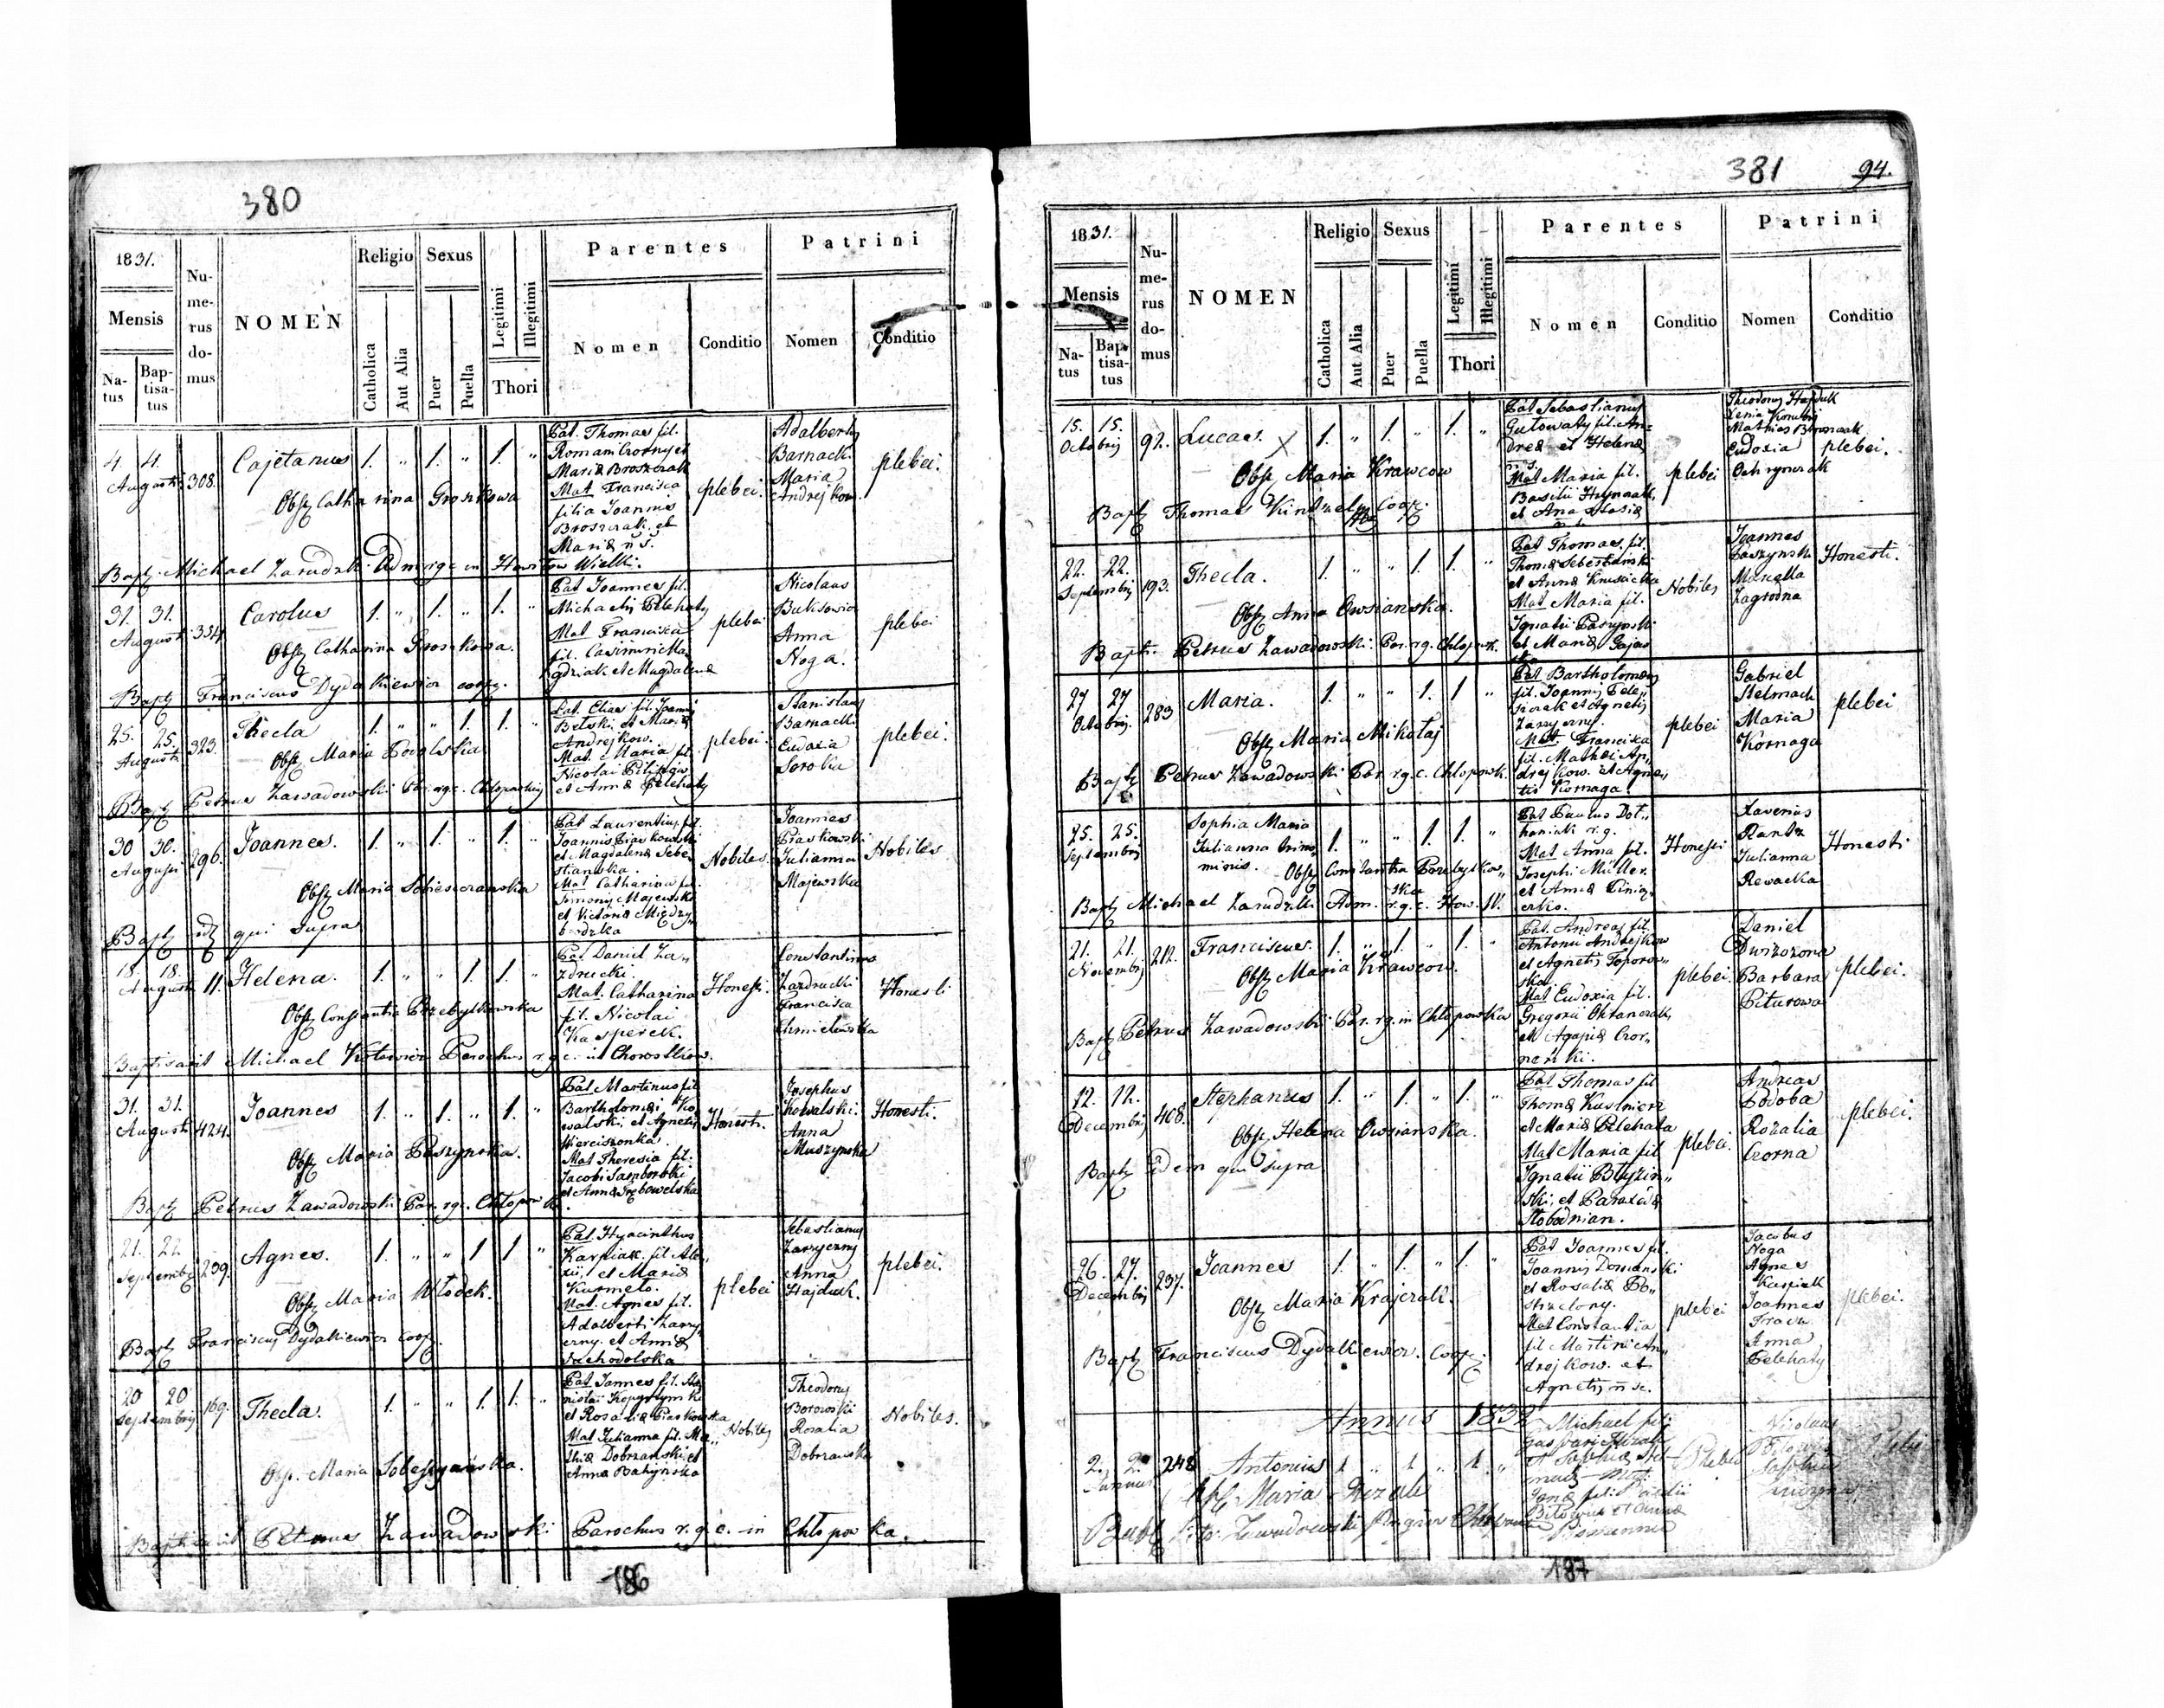 380
1831.
Mensis
Na-
tus
Bap-
tisa-
tus
Nu-
me-
rus
do-
mus
NOMEN
Religio
Catholica
Aut Alia
Sexus
Puer
Puella
Legitimi
Illegitimi
Thori
Parentes
Nomen
Conditio
Patrini
Nomen
Conditio
4. 4.
Augusti
308.
Cajetanus
1. „ 1. „ 1. „
Obst Catharina Groszkowa
Pat. Thomas fil.
Romani Czorny et
Mariæ Broszczak
Mat Francisca
filia Joannis
Broszczak et
Mariæ n. S.
plebei.
Adalbertg
Barnacki
Maria
Andrejkow.
plebei.
Bapt. Michael Zarudzki Adm. rgc in Howilow Wielki.
31. 31.
Augusti
354
Carolus
1. „ 1. „ 1. „
Obst Catharina Groszkowa.
Pat Joannes fil.
Michaelis Pelehaty
Mat Francisca
fil. Casimiri Ma
gdziak et Magdalenæ
plebei
Nicolaus
Bukisowicz
Anna
Noga.
plebei
Bapt Franciscus Dydakiewicz coop.
25. 25.
Augusti
323.
Thecla
1. „ „ 1. 1. „
Obst Maria Podolska
Pat. Elias fil. Joannis
Belski et Mariæ
Andrejkow.
Mat. Maria fil.
Nicolai Pilipiw
et Annæ Pelehaty
plebei.
Stanislaus
Barnacki
Eudoxia
Soroka
plebei.
Bapt Petrus Zawadowski Par. rgc. Chłopowkij
30 30.
Augusti
296.
Joannes.
1. „ 1. „ 1. „
Obst Maria Sobieszczanska
Pat Laurentius fil.
Joannis Piaskowski
et Magdalenæ Sebe
stianska.
Mat Catharina fil.
Simonis Majewski
et Victoriæ Miedzy
brodzka
Nobiles.
Joannes
Piaskowski
Julianna
Majewska
Nobiles
Bapt idz qui supra
18. 18.
Augusti
11.
Helena.
1. „ „ 1. 1. „
Obst Constantia Przebylkowska
Pat Daniel Za„
zdrecki.
Mat. Catharina
fil. Nicolai
Kasperek.
Honesti.
Constantinus
Zazdrecki
Francisca
Chmielewska
Honesti
Baptisavit Michael Kotowicz Parochus r.g.c. in Chorostkow.
31. 31.
Augusti
424.
Joannes
1. „ 1. „ 1. „
Obst Maria Paszynska.
Pat Martinus fil
Bartholomæi Ko
walski, et Agnetis
Wierciszonka.
Mat Theresia fil.
Jacobi Samborski
et Annæ Trębowelska
Honesti.
Josephus
Kowalski.
Anna
Muszynska
Honesti.
Bapt Petrus Zawadowski Par. rgc. Chłopowk.
21. 22.
Septembrij
239.
Agnes.
1. „ „ 1 1 „
Obst Maria Włodek.
Pat. Hyacinthus
Karpiak fil Ale„
xii, et Mariæ
Kurmeto.
Mat. Agnes fil.
Adalberti Zarzy
czny et Annæ
Suchodolska
plebei
Sebastianus
Zarzyczny
Anna
Hajduk.
plebei.
Bapt Franciscus Dydakiewicz coop.
20 20
Septembrij
169.
Thecla.
1. „ „ 1. 1. „
Obst. Maria Sobeszczańska.
Pat Joannes fil. Sta
nislai Kopystynski
et Rosaliæ Piaskowska
Mat Julianna fil. Ma„
thiæ Dobrzanski et
Anna Batynska
Nobiles
Theodorus
Borowski
Rosalia
Dobrzanska
Nobiles.
Baptisavit Petrus Zawadowski Parochus r.g.c. in Chłopowka.
186
381
94.
1831.
Mensis
Na-
tus
Bap-
tisa-
tus
Nu-
me-
rus
do-
mus
NOMEN
Religio
Catholica
Aut Alia
Sexus
Puer
Puella
Legitimi
Illegitimi
Thori
Parentes
Nomen
Conditio
Patrini
Nomen
Conditio
15. 15.
Octobrij
92.
Lucas. X
1. „ 1. „ 1. „
Obst Maria Krawcow
Pat Sebastianus
Gutowaty fil. An=
dreæ et Helenæ
n. s.
Mat Maria fil.
Basilii Hrynczak,
et Anastasiæ
n. s.
plebei
Theodorus Hajduk
Xenia Konubij
Mathias
Eudoxia
Ochrymczak
plebei.
Bapt Thomas Kintzel Coop.
22. 22.
Septembrij
193.
Thecla.
1. „ „ 1. 1. „
Obst Anna Owsianska.
Pat Thomas fil.
Thomæ Sebestianski
et Annæ Krusicka
Mat Maria fil.
Ignatii Paszynski
et Mariæ Gajew
ska
Nobiles
Joannes
Paszynski
Marcella
Zagrodna
Honesti.
Bapt. Petrus Zawadowski Par. rg. Chłopowk.
27 27
Octobrij.
283
Maria.
1. „ „ 1. 1 „
Obst Maria Mikołaj
Pat Bartholomæus
fil. Joannis Fede„
siczak et Agnetis
Zarzyczny.
Mat. Francisca
fil. Mathæi An„
drejkow. et Agne„
tis Kornaga.
plebei
Gabriel
Stelmach
Maria
Kornaga
plebei
Bapt Petrus Zawadowski Par. rg.c. Chłopowk.
25. 25.
Septembrij
Sophia Maria
Julianna trino„
minis.
1. „ „ 1. 1. „
Obst Constantia Przebylkow„
ska
Pat Paulus Dot„
haniuk r.g.
Mat Anna fil.
Josephi Müller.
et Annæ Piniąz„
erko.
Honesti
Xaverius
Rantz
Julianna
Rewacka
Honesti
Bapt Michael Zarudzki Adm. r.g.c. How. W.
21. 21.
Novembrij
212.
Franciscus.
1. „ 1. „ 1. „
Obst Maria Krawcow.
Pat. Andreas fil.
Antonii Andrejkow
et Agnetis Toporow„
ska.
Mat Eudoxia fil.
Gregorii Oktanczak,
et Agapiæ Czor„
nenki.
plebei.
Daniel
Dwirozona
Barbara
Piturowa
plebei.
Bapt Petrus Zawadowski Par. rg. in Chłopowka
12. 12.
Decembrij
408.
Stephanus
1. „ 1. „ 1. „
Obst Helena Owsianska.
Pat Thomas fil
Thomæ Kusznierz
et Mariæ Pelehata
Mat Maria fil
Ignatii Błyzin„
ski, et Parasciæ
Słobodnian.
plebei.
Andreas
Podoba
Rozalia
Czorna
plebei.
Bapt Idem qui supra
26. 27.
Decembrij
237.
Joannes
1. „ 1. „ 1. „
Obst Maria Krajczak.
Pat Joannes fil.
Joannis Domanski
et Rosaliæ Po„
strzelony.
Mat Constantia
fil Martini An„
drejkow. et
Agnetis n sc.
plebei
Jacobus
Noga
Agnes
Karpiak
Joannes
Anna
Pelehaty
plebei.
Bapt Franciscus Dydakiewicz. Coop.
Annus 1832
2. 2.
248
Antonius
1 „ 1 „ 1 „
Obst Maria
Michael fil:
Gaspari
et Sophiæ
Nicolaus
Sophia
Bapt Petr. Zawadowski
187